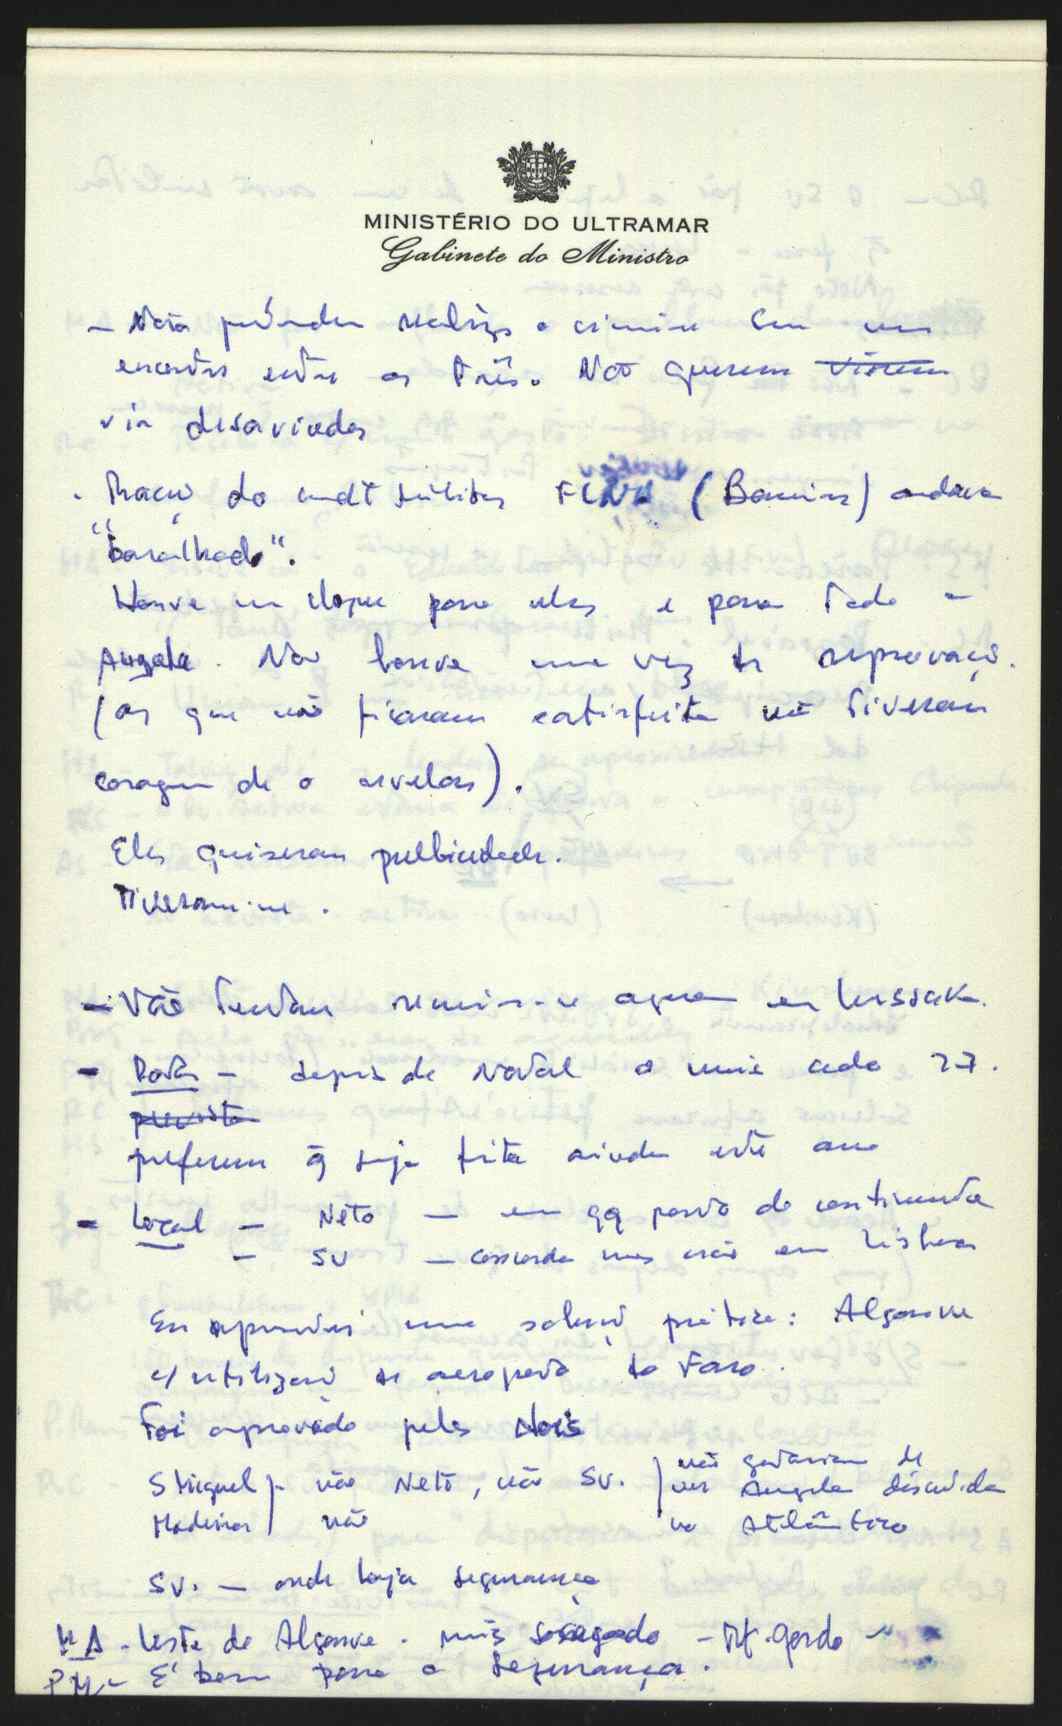 MINISTÉRIO DO ULTRAMAR
Gabinete do Ministro
- Não pretendem realizar a cimeira sem um
encontro entre os três. Não querem
vir desavindos
. Reacção do militar FNLA (Barreiros) andava
"baralhado".
Houve um elogio para eles e para todo
Angola. Não houve uma vez de reprovação.
(os que não ficaram satisfeitos não tiveram
coragem de o revelar).
Eles quiseram publicidade.
Tiveram-na.
- Vão tentar reunir-se agora em Lussaka.
- Data - depois de Natal o mais cedo 27.
preferem q̃ seja feita ainda este ano
- Local - Neto - em qq ponto do continente
- SV - concorda mas não em Lisboa
Eu apresentei uma solução prática: Algarve
c/ utilização do aeroporto de Faro.
Foi aprovado pelos dois
S Miguel } - não Neto, não SV. } não gostariam de
Madeira } não } ver Angola discutida
no Atlântico
SV. - onde haja segurança
- Leste do Algarve. mais sossegado - Mt. Gordo
PM - É bom para a segurança.